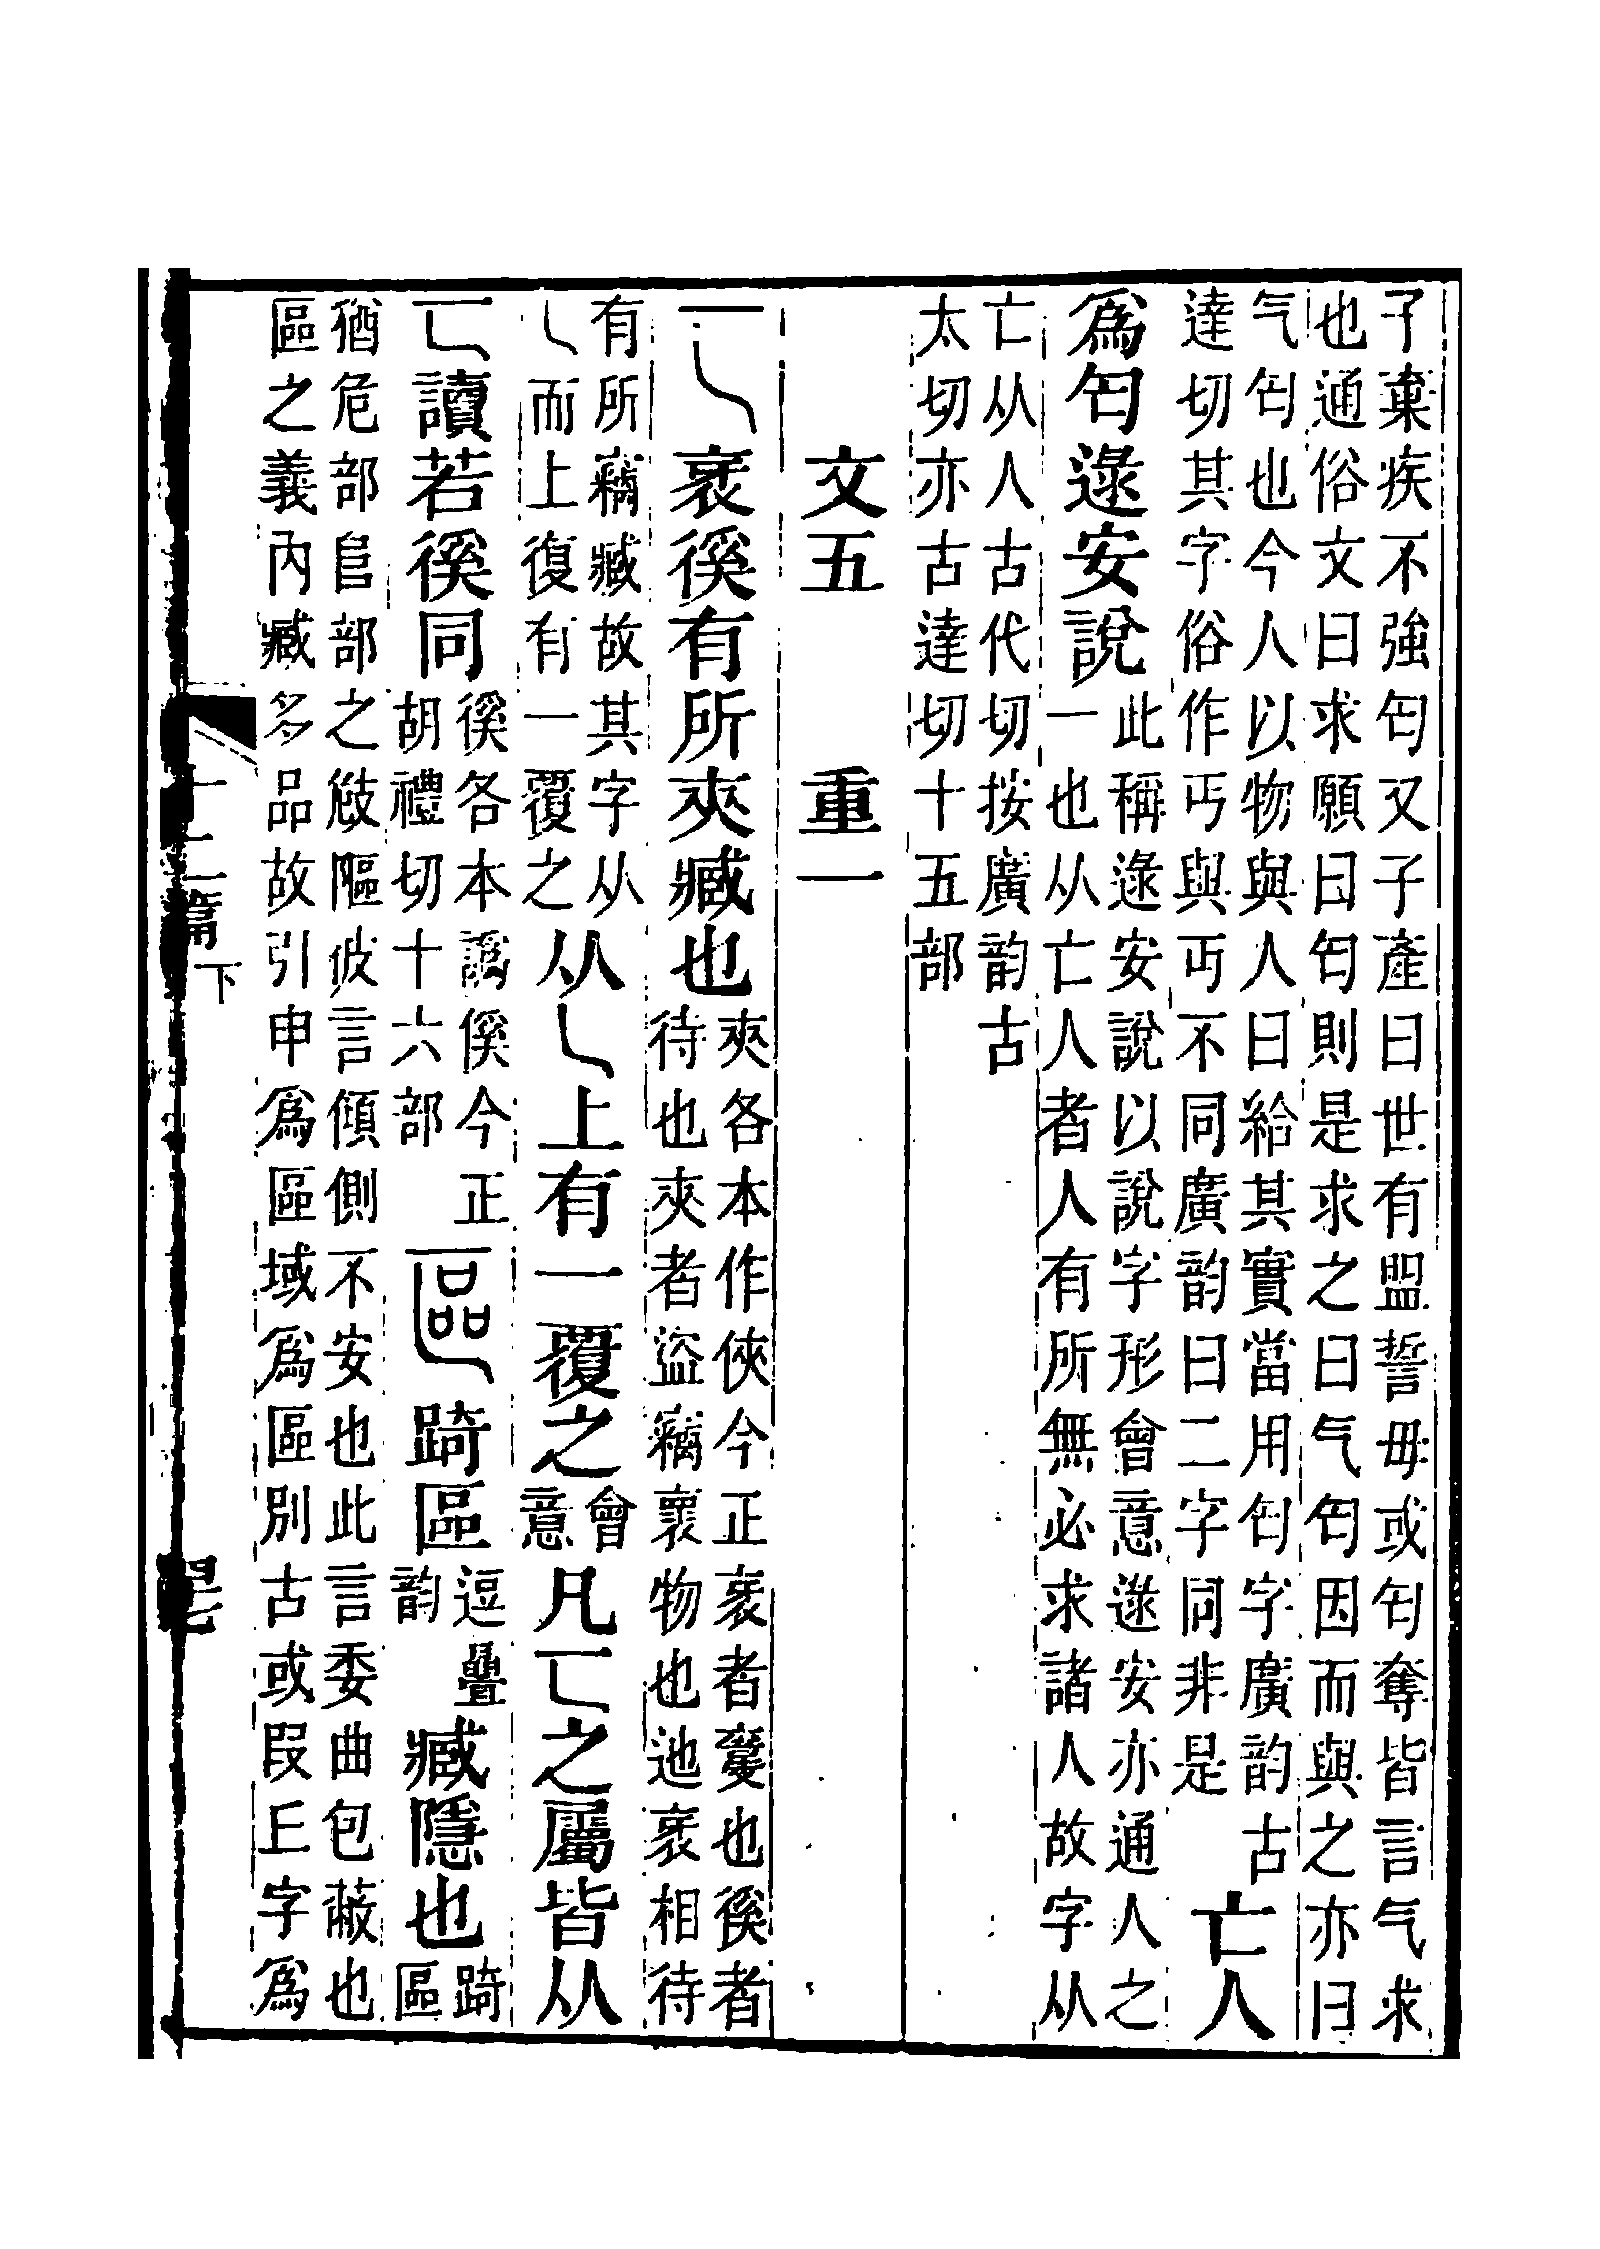 子棄疾不強匄又子產曰世有盟誓毋或匄奪皆言气求
也通俗文曰求願曰匄則是求之曰气匄因而與之亦曰
气匄也今人以物與人曰給其實當用匄字廣韵古
達切其字俗作丐與丏不同廣韵曰二字同非是
亾人
爲匄逯安說
此稱逯安說以說字形會意逯安亦通人之
一也从亾人者人有所無必求諸人故字从
亾从人古代切按廣韵古
太切亦古達切十五部
文五 重一
匸衺徯有所夾臧也
夾各本作俠今正衺者䙝也徯者
待也夾者盜竊褱物也迆衺相待
有所竊臧故其字从
乚而上復有一覆之
从乚上有一覆之
會
意
凡匸之屬皆从
匸讀若徯同
徯各本譌傒今正
胡禮切十六部
區踦區
逗疊
韵
臧隱也
踦
區
猶危部𨸏部之㩻䧢彼言傾側不安也此言委曲包蔽也
區之義內臧多品故引申爲區域爲區別古或叚丘字爲
十二篇下